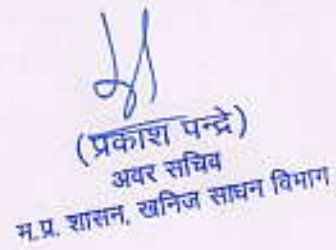 (प्रकाश पन्द्रे)
अवर सचिव
म.प्र. शासन, खनिज साधन विभाग